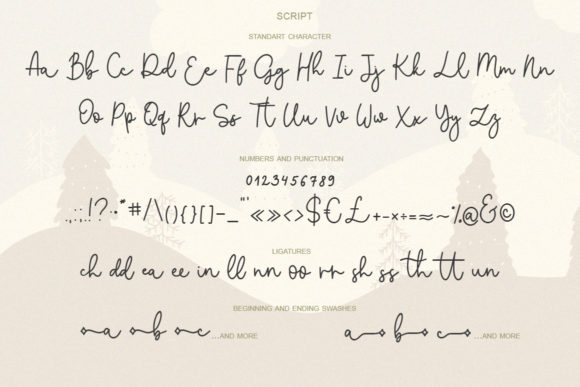 SCRIPT
STANDART CHARACTER
Aa Bb Cc Dd Ee Ff Gg Hh Ii Jj Kk Ll Mm Nn
Oo Pp Qq Rr Ss Tt Uu Vv Ww Xx Yy Zz
NUMBERS AND PUNCTUATION
0123456789
.,:;.!?·•*#/\(){}[]-_"'«»<>$€£+-×÷=≈~%@&©
LIGATURES
ch dd ea ee in ll nn oo rr sh ss th tt un
BEGINNING AND ENDING SWASHES
a b c ...AND MORE a b c ...AND MORE